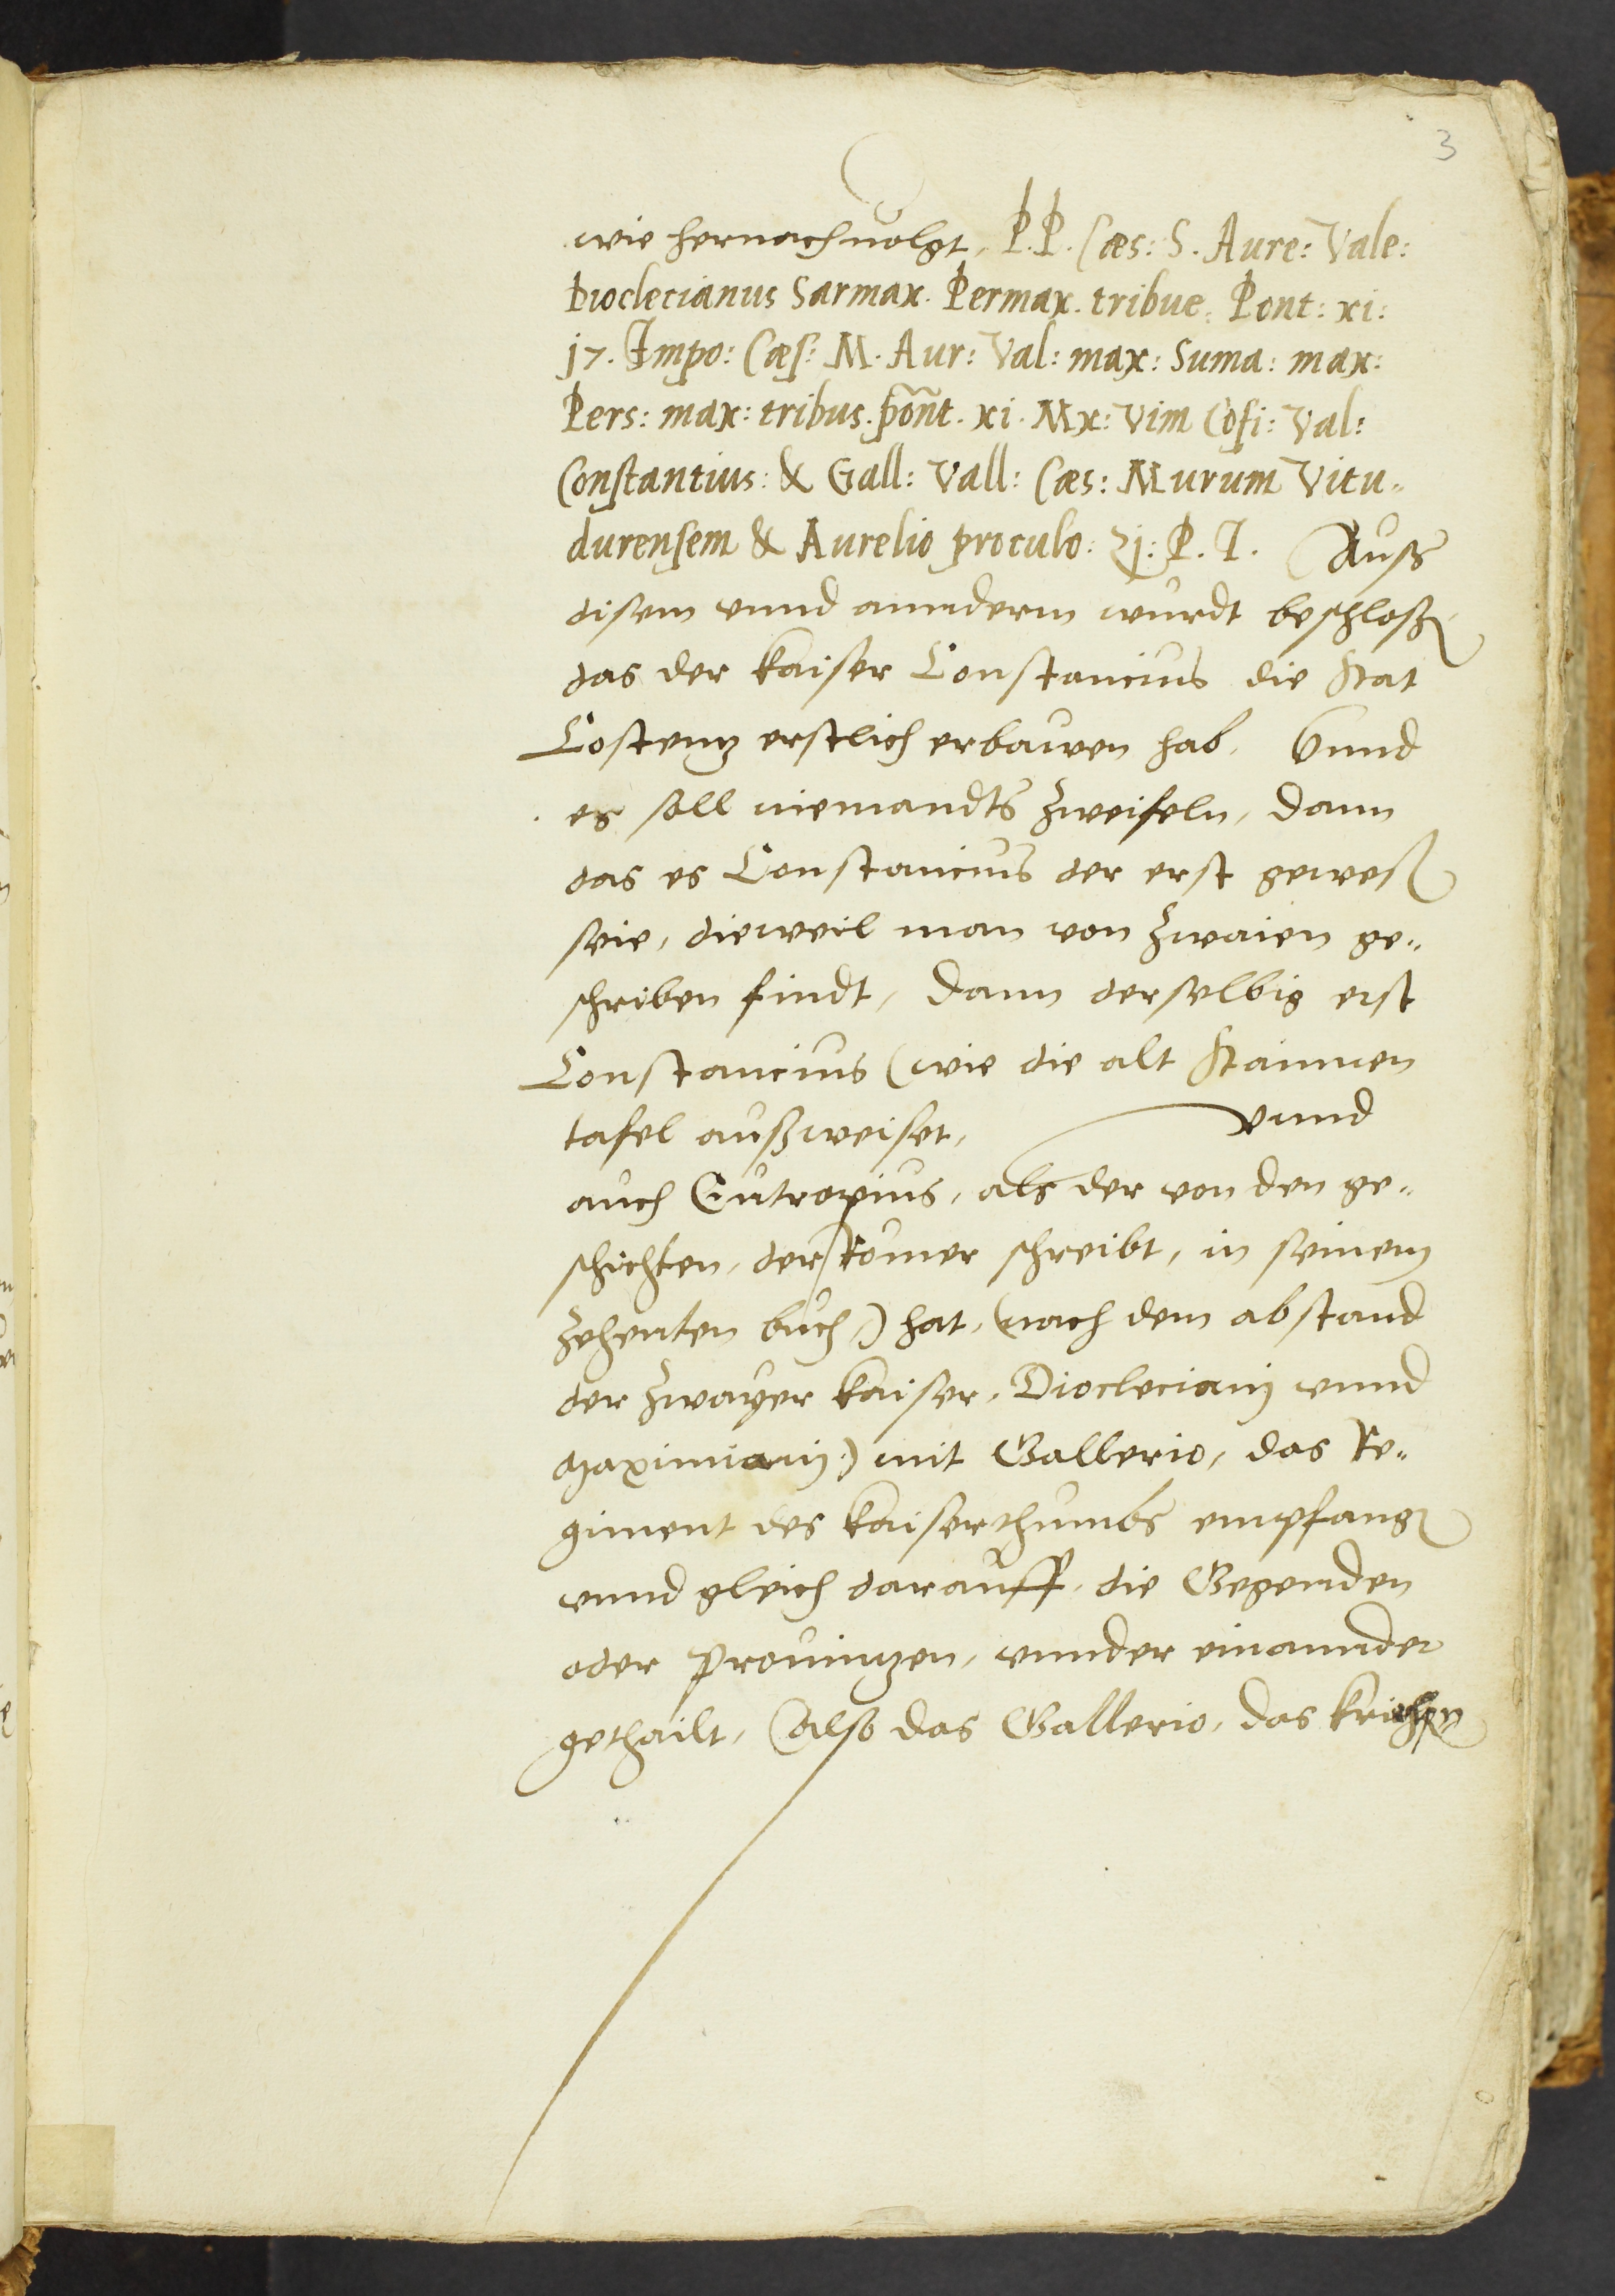 3
wie hernach uolgt, P.P. Cæs: S. Aure: Vale:
Dioclecianus Sarmax. Permax. tribue. Pont: xi:
j7. Impo: Cæſ: M. Aur: Val: max: Suma: max:
Pers: max: tribus. põnt. xi. Mx: Vim Coſi: Val:
Conſtantius: & Gall: Vall: Cæs: Murum Vitu-
durenſem & Aurelio proculo: 2j: P. I. Auß
disem vnnd annderm wurdt beschloßen
das der kaiser Constancius die Stat
Costenz erstlich erbawen hab. Vnnd
es soll niemandts zweifeln, dann
das es Constancius der erst gewesen
seie, dieweil man von zwaien ge-
schriben findt, dann derselbig erst
Constancius (wie die alt Stainnen
tafel außweiset, vnnd
auch Eutropius, als der von den ge-
schichten, der Römer schreibt, in seinem
zehenten buch) hat, (nach dem abstand
der zwayer kaiser, Diocleciani vnnd
Maximiani:) mit Gallerio, das Re-
giment des kaiserthumbs empfangen
vnnd gleich darauff, die Gegenden
oder Prouinzen, vnnder einannder
gethailt, Also das Gallerio, das krichen